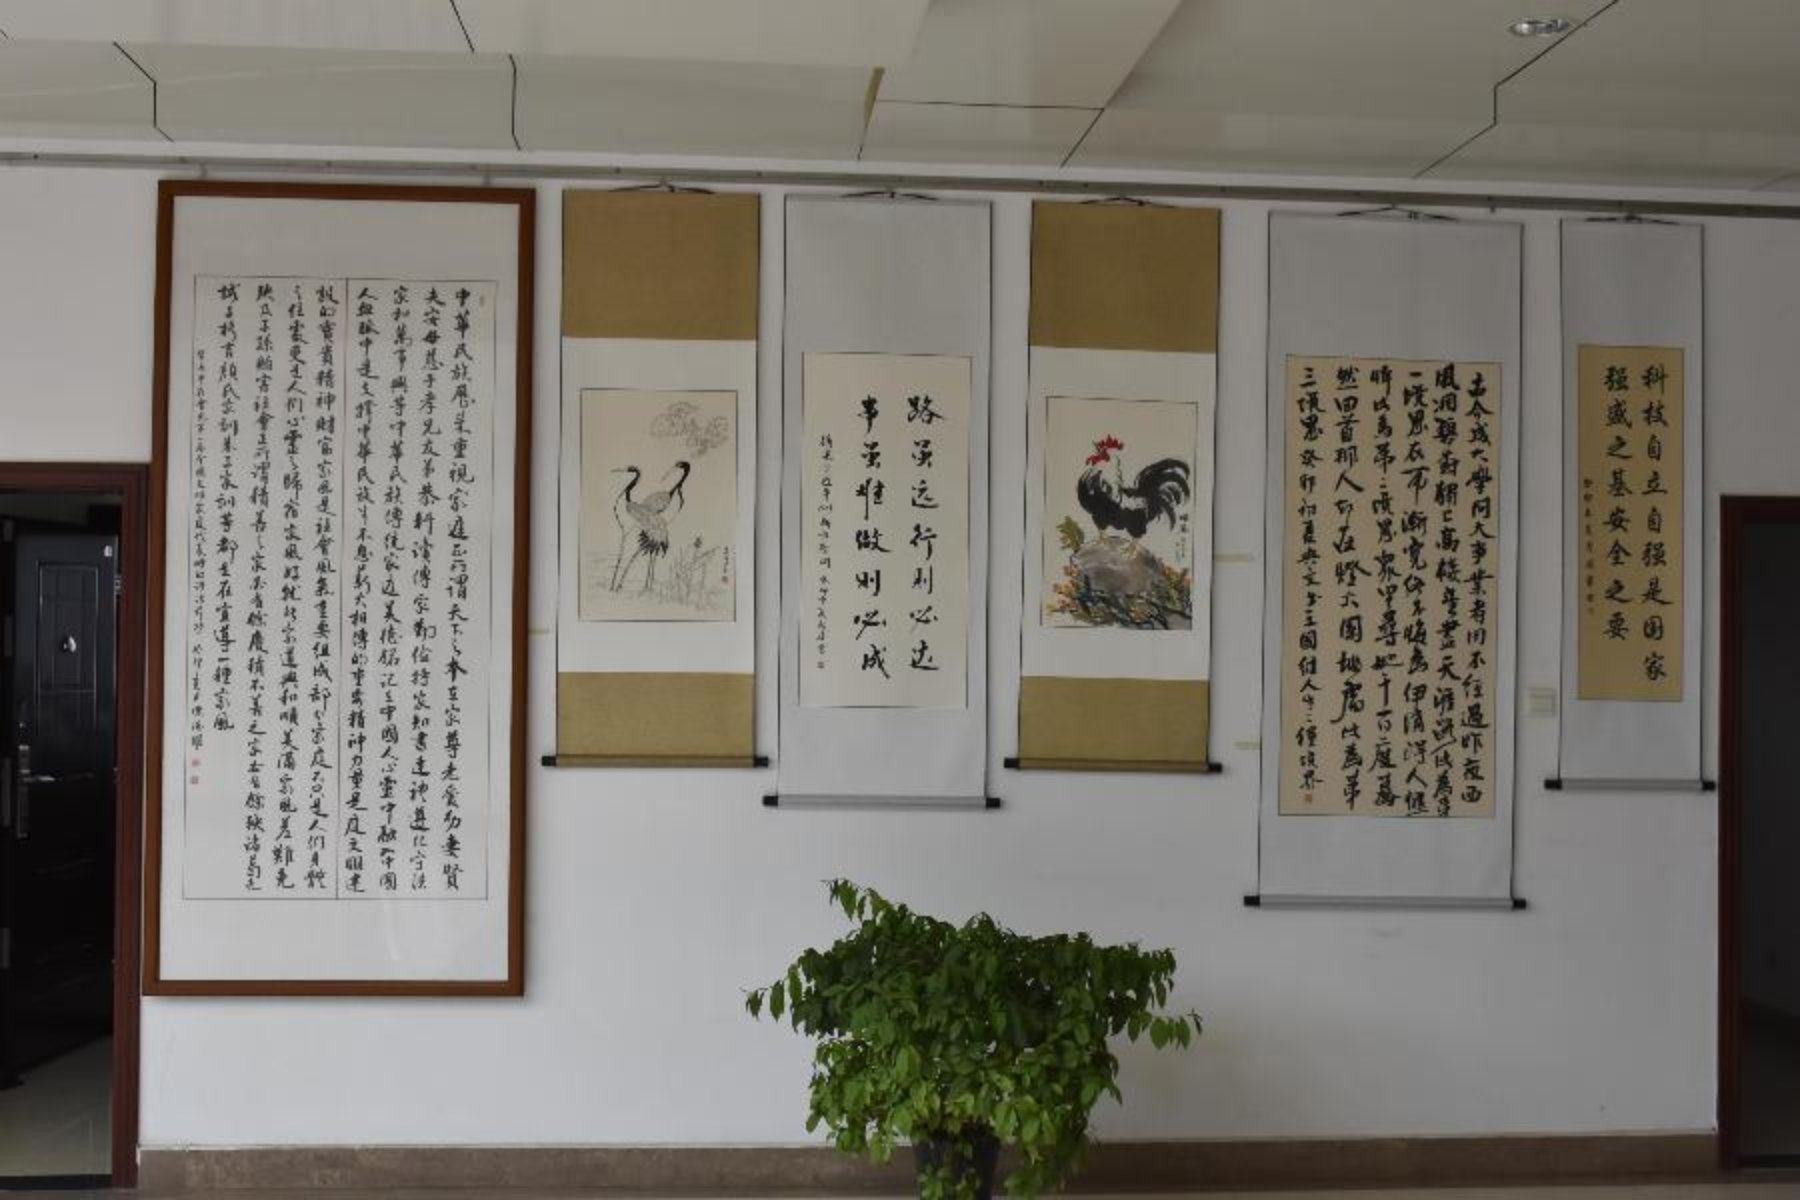 中華民族歷来重視家庭正所谓天下之本在家尊老爱幼妻賢
夫安母慈子孝兄友弟恭耕讀傳家勤俭持家知書達礼遵纪守法
家和萬事興等中華民族傳统家庭美德铭记在中國人心靈中融入中國
人血脉中是支撑中華民族生生不息薪火相傳的重要精神力量是庭文明建
設的寶貴精神財富家風是社會風氣重要組成部分家庭不只是人们身體
之住處更是人们心靈之歸宿家風好就能家道興和順美滿家風差難免
殃及子孫贻害社會正所谓積善之家必有餘慶積不善之家必有餘殃諸葛亮
誡子格言顔氏家訓朱子家訓等都是在宣導一種家風
路虽远行则必达
事虽难做则必成
古今成大學问大事業者用不经過昨夜西
風凋碧树獨上高樓望盡天涯路此為第
一境界衣带漸寬终不悔為伊消得人憔
悴此為第二境界眾里尋他千百度驀
然回首那人却在燈火闌珊處此為第
三境界
科技自立自强是国家
强盛之基安全之要